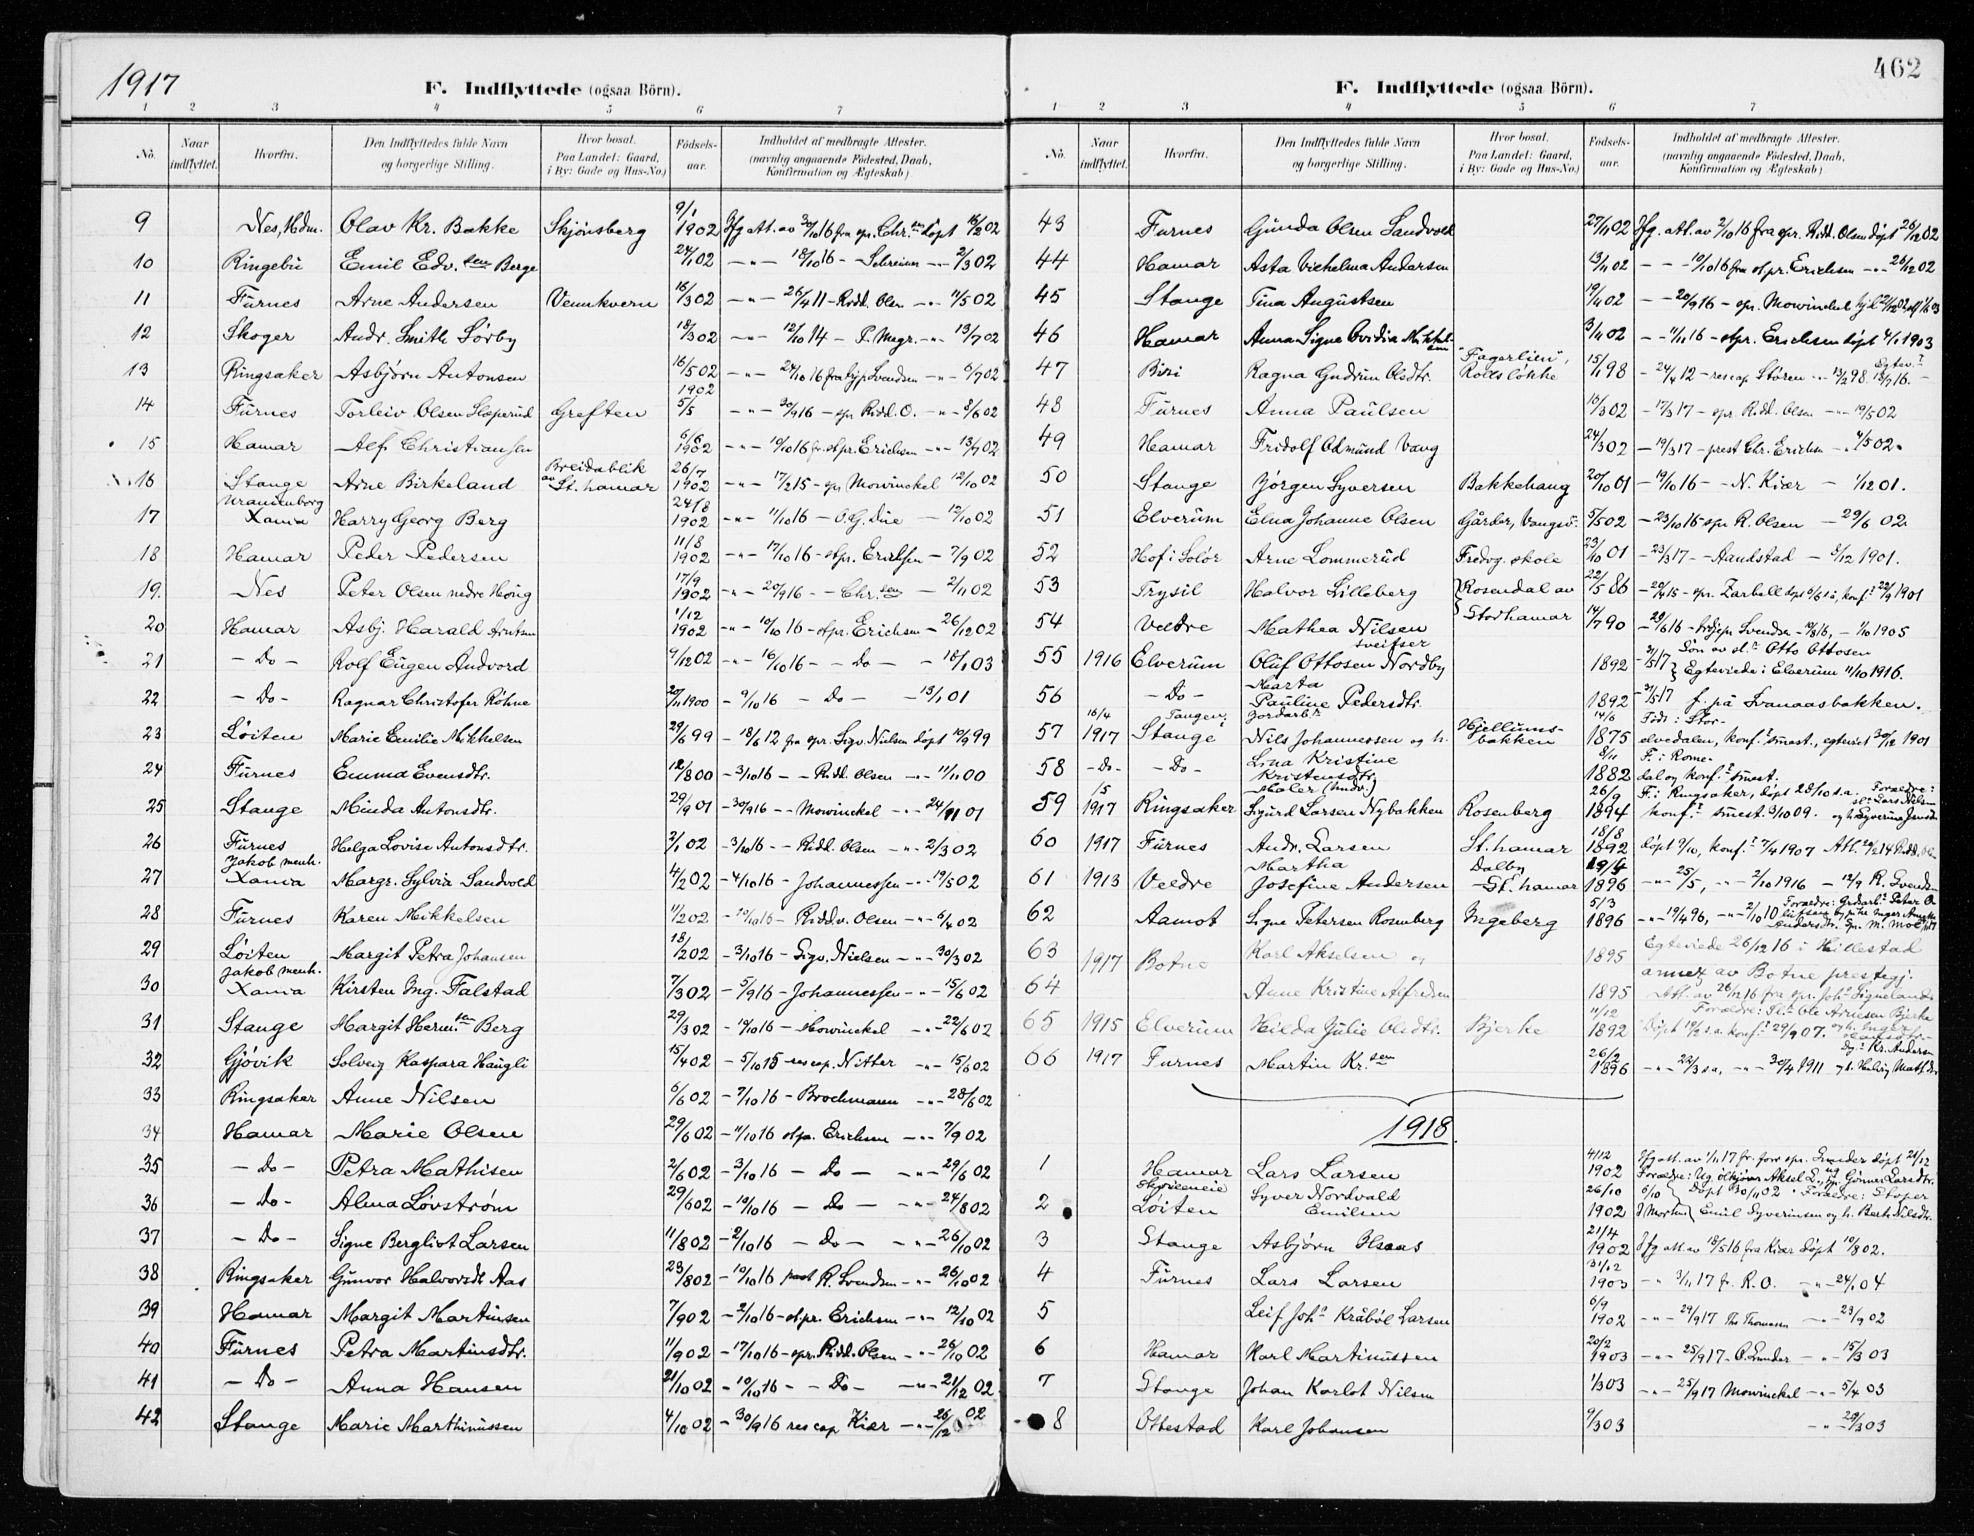 1917
F. Indflyttede (ogsaa Börn).
1 2 3 4 5 6 7
No. Naar indflyttet. Hvorfra. Den Indflyttedes fulde Navn og borgerlige Stilling. Hvor bosat. Paa Landet: Gaard, i By: Gade og Hus-No.) Fødsels-aar. Indholdet af medbragte Attester. (navnlig angaaende Fødested, Daab, Konfirmation og Ægteskab)
9 Nes, Hdm. Olav Kr. Bakke Skjønsberg 9/1 1902
10 Ringebu Emil Edv. sen Berge 24/1 02 — „ — 18/10 16 — Schreiner — „ — 2/3 02
11 Furnes Arne Andersen Vennkvern 16/3 02 — „ — 26/4 11 — Ridd. Olsen — „ — 11/5 02
12 Skoger Andr. Smith Sørby 18/3 02 — „ — 12/10 14 — „ — 13/7 02
13 Ringsaker Asbjørn Antonsen 16/5 02 — „ — 24/10 16 fra hjp. Svendsen — „ — 6/7 02
14 Furnes Torleiv Olsen Sloperud Greften 1902 5/5 — „ — 30/9 16 — spr. Ridd. O. — „ — 8/6 02
15 Hamar Alf Christiansen 6/6 1902 — „ — 10/10 16 fr. stpr. Erichsen — „ — 13/7 02
16 Stange Arne Birkeland Breidablik av St. hamar 26/7 1902 — „ — 17/2 15 — spr. Mowinckel 12/10 02
17 Uranienborg Xania Harry Georg Berg 24/8 1902 — „ — 11/10 16 — O. G. Due — 12/10 02
18 Hamar Peder Pedersen 11/8 1902 — „ — 17/10 16 — stpr. Erichsen — 7/9 02
19. Nes Peter Olsen nedre Høug 17/9 1902 — „ — 20/9 16 — Chr. sen — 2/11 02
20 Hamar Asbj. Harald Arntsen 1/12 1902 — „ — 10/10 16 — stpr. Erichsen — 26/12 02
21 — Do — Rolf Eugen Andvord 9/12 02 — „ — 16/10 16 — — Do — — 18/1 03
22 — Do — Ragnar Christofer Röhne 20/11 1900 — 9/10 16 — Do — — 13/1 01
23 Løiten Marie Emilie Mikkelsen 29/6 99 — 18/6 12 fra spr. Sigv. Nielsen døpt 10/9 99
24 Furnes Emma Evensdtr. 12/8 00 — 3/10 16 — — Ridd. Olsen — „ — 11/11 00
25 Stange Minda Antonsdtr. 29/9 01 — 30/9 16 — — Mowinckel — „ — 24/11 01
26 Furnes Helga Lovise Antonsdtr. 2/1 02 — 3/10 16 — — Ridd. Olsen — „ — 2/3 02
27 Jakob menh. Xania Margr. Sylvia Sandvold 4/2 02 — 4/10 16 — Johannessen — „ — 19/5 02
28 Furnes Karen Mikkelsen 11/2 02 — 10/10 16 — Riddv. Olsen — „ — 6/4 02
29 Løiten Margit Petra Johansen 18/2 02 — 3/10 16 — Sigv. Nielsen — „ — 30/3 02
30 Jakob menh. Xania Kirsten Ing. Falstad 7/3 02 — 5/9 16 — Johannessen — „ — 15/6 02
31 Stange Margit Herm. sen Berg 29/3 02 — 10/10 16 — Mowinckel — „ — 22/6 02
32 Gjøvik Solveig Kaspara Haugli 15/4 02 — 5/10 15 — res cap. Nitter — „ — 15/6 02
33 Ringsaker Anne Nilsen 6/6 02 — 7/10 16 — Brochmann — „ — 28/6 02
34 Hamar Marie Olsen 29/6 02 — 11/10 16 stpr. Erichsen — „ — 7/9 02
35 — Do — Petra Mathisen 2/6 02 — 3/10 16 — Do — — „ — 29/6 02
36 — Do — Alma Lövström 29/6 02 — 10/10 16 — Do — — „ — 24/8 02
37 — Do — Signe Bergliot Larsen 11/8 02 — 2/10 16 — Do — — „ — 26/10 02
38 Ringsaker Gunvor Halvorsdt Aas 23/8 02 — 10/10 16 prost R. Svendsen — „ — 26/10 02
39 Hamar Margit Martinsen 7/9 02 — 2/10 16 — st.pr. Erichsen — „ — 12/10 02
40 Furnes Petra Martinsdtr. 11/9 02 — 17/10 16 — spr. Ridd. Olsen — „ — 26/10 02
41 — Do — Anna Hansen 21/10 02 — 10/10 16 — — Do — — „ — 21/12 02
42 Stange Marie Marthinussen 4/10 02 — 30/9 16 res cap Kiær — „ — 26/12 02
462
F. Indflyttede (ogsaa Börn).
1 2 3 4 5 6 7
No. Naar indflyttet. Hvorfra. Den Indflyttedes fulde Navn og borgerlige Stilling. Hvor bosat. Paa Landet: Gaard, i By: Gade og Hus-No.) Fødsels-aar. Indholdet af medbragte Attester. (navnlig angaaende Fødested, Daab, Konfirmation og Ægteskab)
43 Furnes Gunda Olsen Sandvold 27/11 02 Ifg. att. av 2/10 16 fra spr. Ridd. Olsen døpt 26/12 02
44 Hamar Asta Vilhelma Andersen 13/11 02 — — 10/10 16 fra st.pr. Erichsen — „ — 26/12 02
45 Stange Tina Augustsen 19/11 02 — — 20/9 16 — spr. Mowinckel
46 Hamar Anna Signe Ovidia Mikkelsen 3/11 02 — 11/11 16 — stpr. Erichsen døpt 4/1 1903
47 Biri Ragna Gudrun Olsdtr. "Fagerlien", Rodsløkke 15/1 98 — 24/4 12 — res cap Støren — „ — 13/2 98.
48 Furnes Anna Paulsen 16/3 02 — 17/3 17 — spr Ridd. Olsen — „ — 19/5 02
49 Hamar Fridolf Odmund Vang 24/3 02 — 19/3 17 — prest Chr. Erichsen — „ 4/5 02.
50 Stange Jörgen Syversen Bakkehaug 20/10 01 — 19/10 16 — — N. Kiær — 1/12 01.
51 Elverum Elna Johanne Olsen Gårder, Vangså. 5/5 02 — 23/10 16 — spr R. Olsen — 29/6 02
52 Hof i Solør Arne Lommerud Fredvg. skole 23/10 01 — 23/3 17 — Aandstad — 8/12 1901.
53 Trysil Halvor Lilleberg Rosendal av Storhamar 22/5 86
54 Veldre Mathea Nilsen 14/7 90
55 1916 Elverum sveitser Oluf Ottosen Nordby 1892 — 31/5 17 Søn av sl. Otto Ottosen Egteviede i Elverum 11/10 1916.
56 — Do — Marta Pauline Pedersdtr. 1892 — 31/5 17 f. på Svanaasbakken.
57 16/4 1917 Tangen, Stange Jordarbr. Nils Johannessen og h. Hjellums-bakken 14/6 1875 Född i Stor-elvedalen, konf. smest., egteviet 30/12 1901
58 — Do — — Do — Lina Kristine Kristensdtr. 8/11 1882 F. i Rome-dal og konf. smest.
59 1/5 1917 Ringsaker Maler (Smdv.) Sigurd Larsen Nybakken Rosenberg 26/9 1894 F. i Ringsaker, döpt 28/10 s.a. Forældre: sl. Lars Nilsen konf. smest. 3/10 09.
60 1917 Furnes Andr. Larsen St. hamar 18/8 1892 døpt 9/10, konf. 7/4 1907
61 1913 Veldre Martha Josefine Andersen Dalby St. hamar 19/4 1896 — „ — 25/5, — „ — 2/10 1916 — 12/9 R. Svendsen
62 Aamot Signe Petersen Rosenberg Ingeberg 5/3 1896 — „ — 19/4 96, — „ — 2/10 10
63 1917 Botne Karl Akselsen og 1895 Egteviede 26/12 16 i Hillestad annex av Botne prestegj.
64 Anne Kristine Alfredsen 1895 Att. av 26/12 16 fra spr. Joh. Signeland
65 1915 Elverum Hilda Julie Olsdtr. Bjerke 11/12 1892 Forældre: Sl. Ole Arnesen Bjerke og h. Inger
66 1917 Furnes Martin Kr. sen 26/2 1896 — „ — 22/3 s.a., — „ — 30/4 1911
1918.
1 Hamar Lars Larsen 4/12 1902
2 Løiten Syver Nordvald Emilsen 26/10 1902 Emil Syverinsen og h. Berth. Nilsdtr.
3 Stange Asbjørn Olsaas 21/4 1902 Ifg att. av 18/5 16 fra Kiær döpt 10/8 02.
4 Furnes Lars Larsen 31/12 1903 — „ 3/11 17 fr. R. O. — „ — 24/1 04
5 Leif Joh. Kråböl Larsen 6/9 1902 — „ — 29/9 17 — „ — 23/9 02
6 Hamar Karl Martinussen 20/2 1903 — „ — 25/9 17 — O. Lunder — „ — 15/3 03
7 Stange Johan Karlot Nilsen 1/3 03 — „ — 25/9 17 Mowinckel — „ — 5/4 03
8 Ottestad Karl Johansen 9/3 03 — „ — 29/3 03